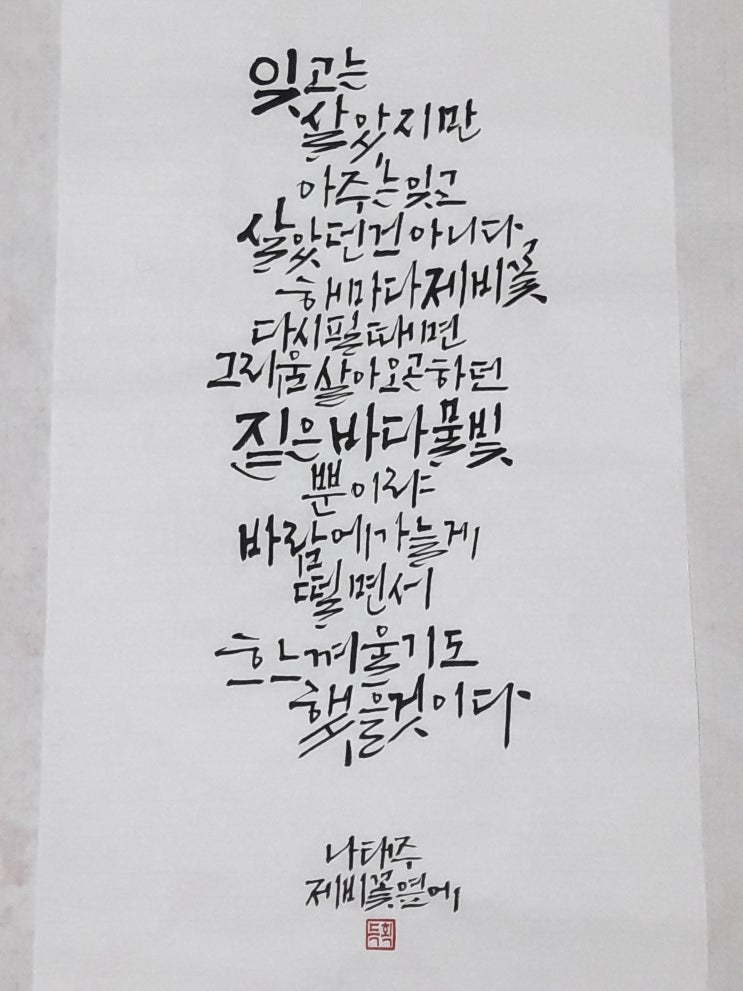 잊고는
살았지만
아주는잊고
살았던건아니다
해마다제비꽃
다시필때면
그리움살아오곤하던
짙은바다물빛
뿐이랴
바람에가늘게
떨면서
흐느껴울기도
했을것이다
나태주
제비꽃옆에